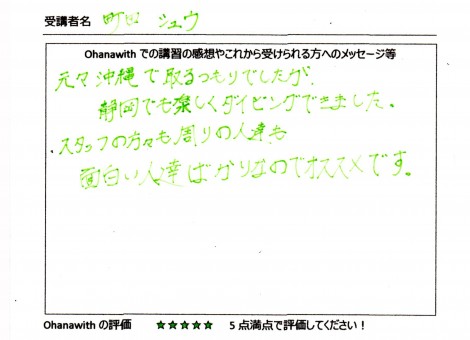 受講者名 町田 シュウ
Ohanawith での講習の感想やこれから受けられる方へのメッセージ等
元々沖縄で取るつもりでしたが、
静岡でも楽しくダイビングできました。
スタッフの方々も周りの人達も
面白い人達ばかりなのでオススメです。
Ohanawith の評価 ★★★★★ 5 点満点で評価してください！